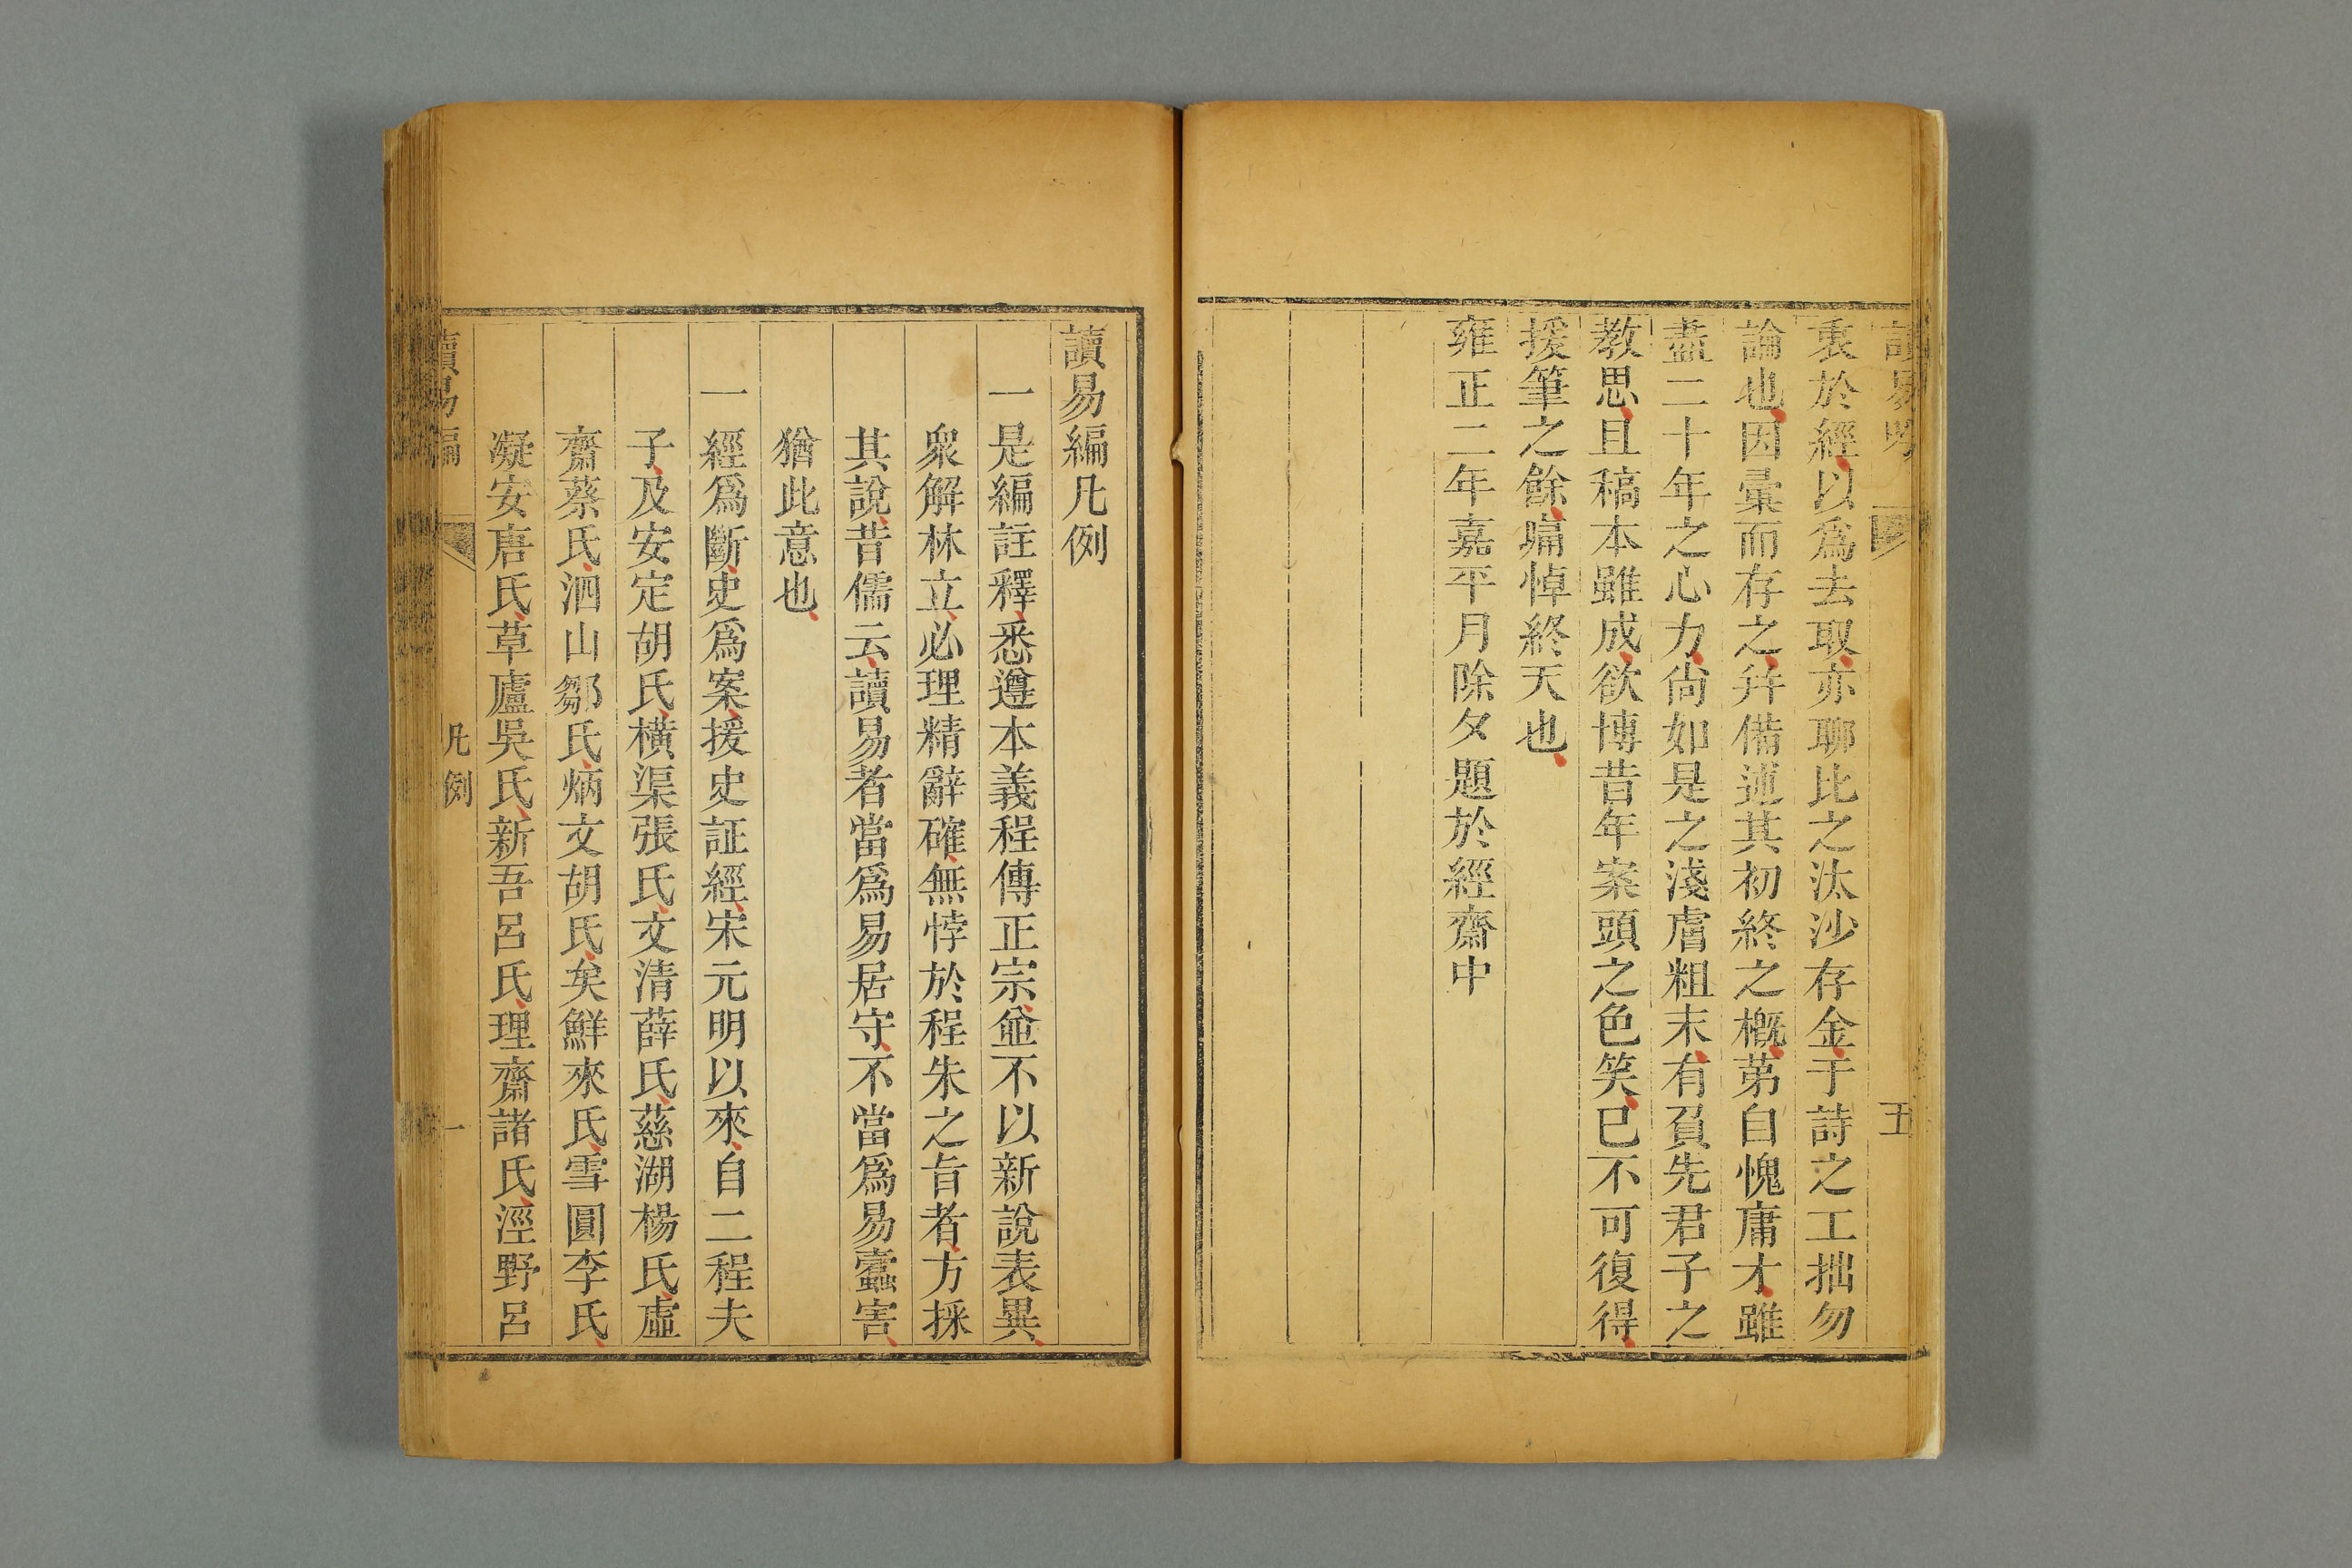 衷於經以爲去取亦聊比之汰沙存金于詩之工拙勿
論也因彚而存之并備述其初終之槪苐自愧庸才雖
盡二十年之心力尙如是之淺膚粗末有負先君子之
教思且稿本雖成欲博昔年案頭之色笑已不可復得
援筆之餘痛悼終天也
雍正二年嘉平月除夕題於經齋中
五
讀易編凡例
一是編註釋悉遵本義程傳正宗並不以新說表異
衆解林立必理精辭確無悖於程朱之旨者方採
其說昔儒云讀易者當爲易居守不當爲易蠹害
猶此意也
一經爲斷史爲案援史証經宋元明以來自二程夫
子及安定胡氏橫渠張氏文清薛氏慈湖楊氏虛
齋蔡氏泗山鄒氏炳文胡氏矣鮮來氏雪圓李氏
凝安唐氏草廬吳氏新吾呂氏理齋諸氏涇野呂
讀易編 凡例 一